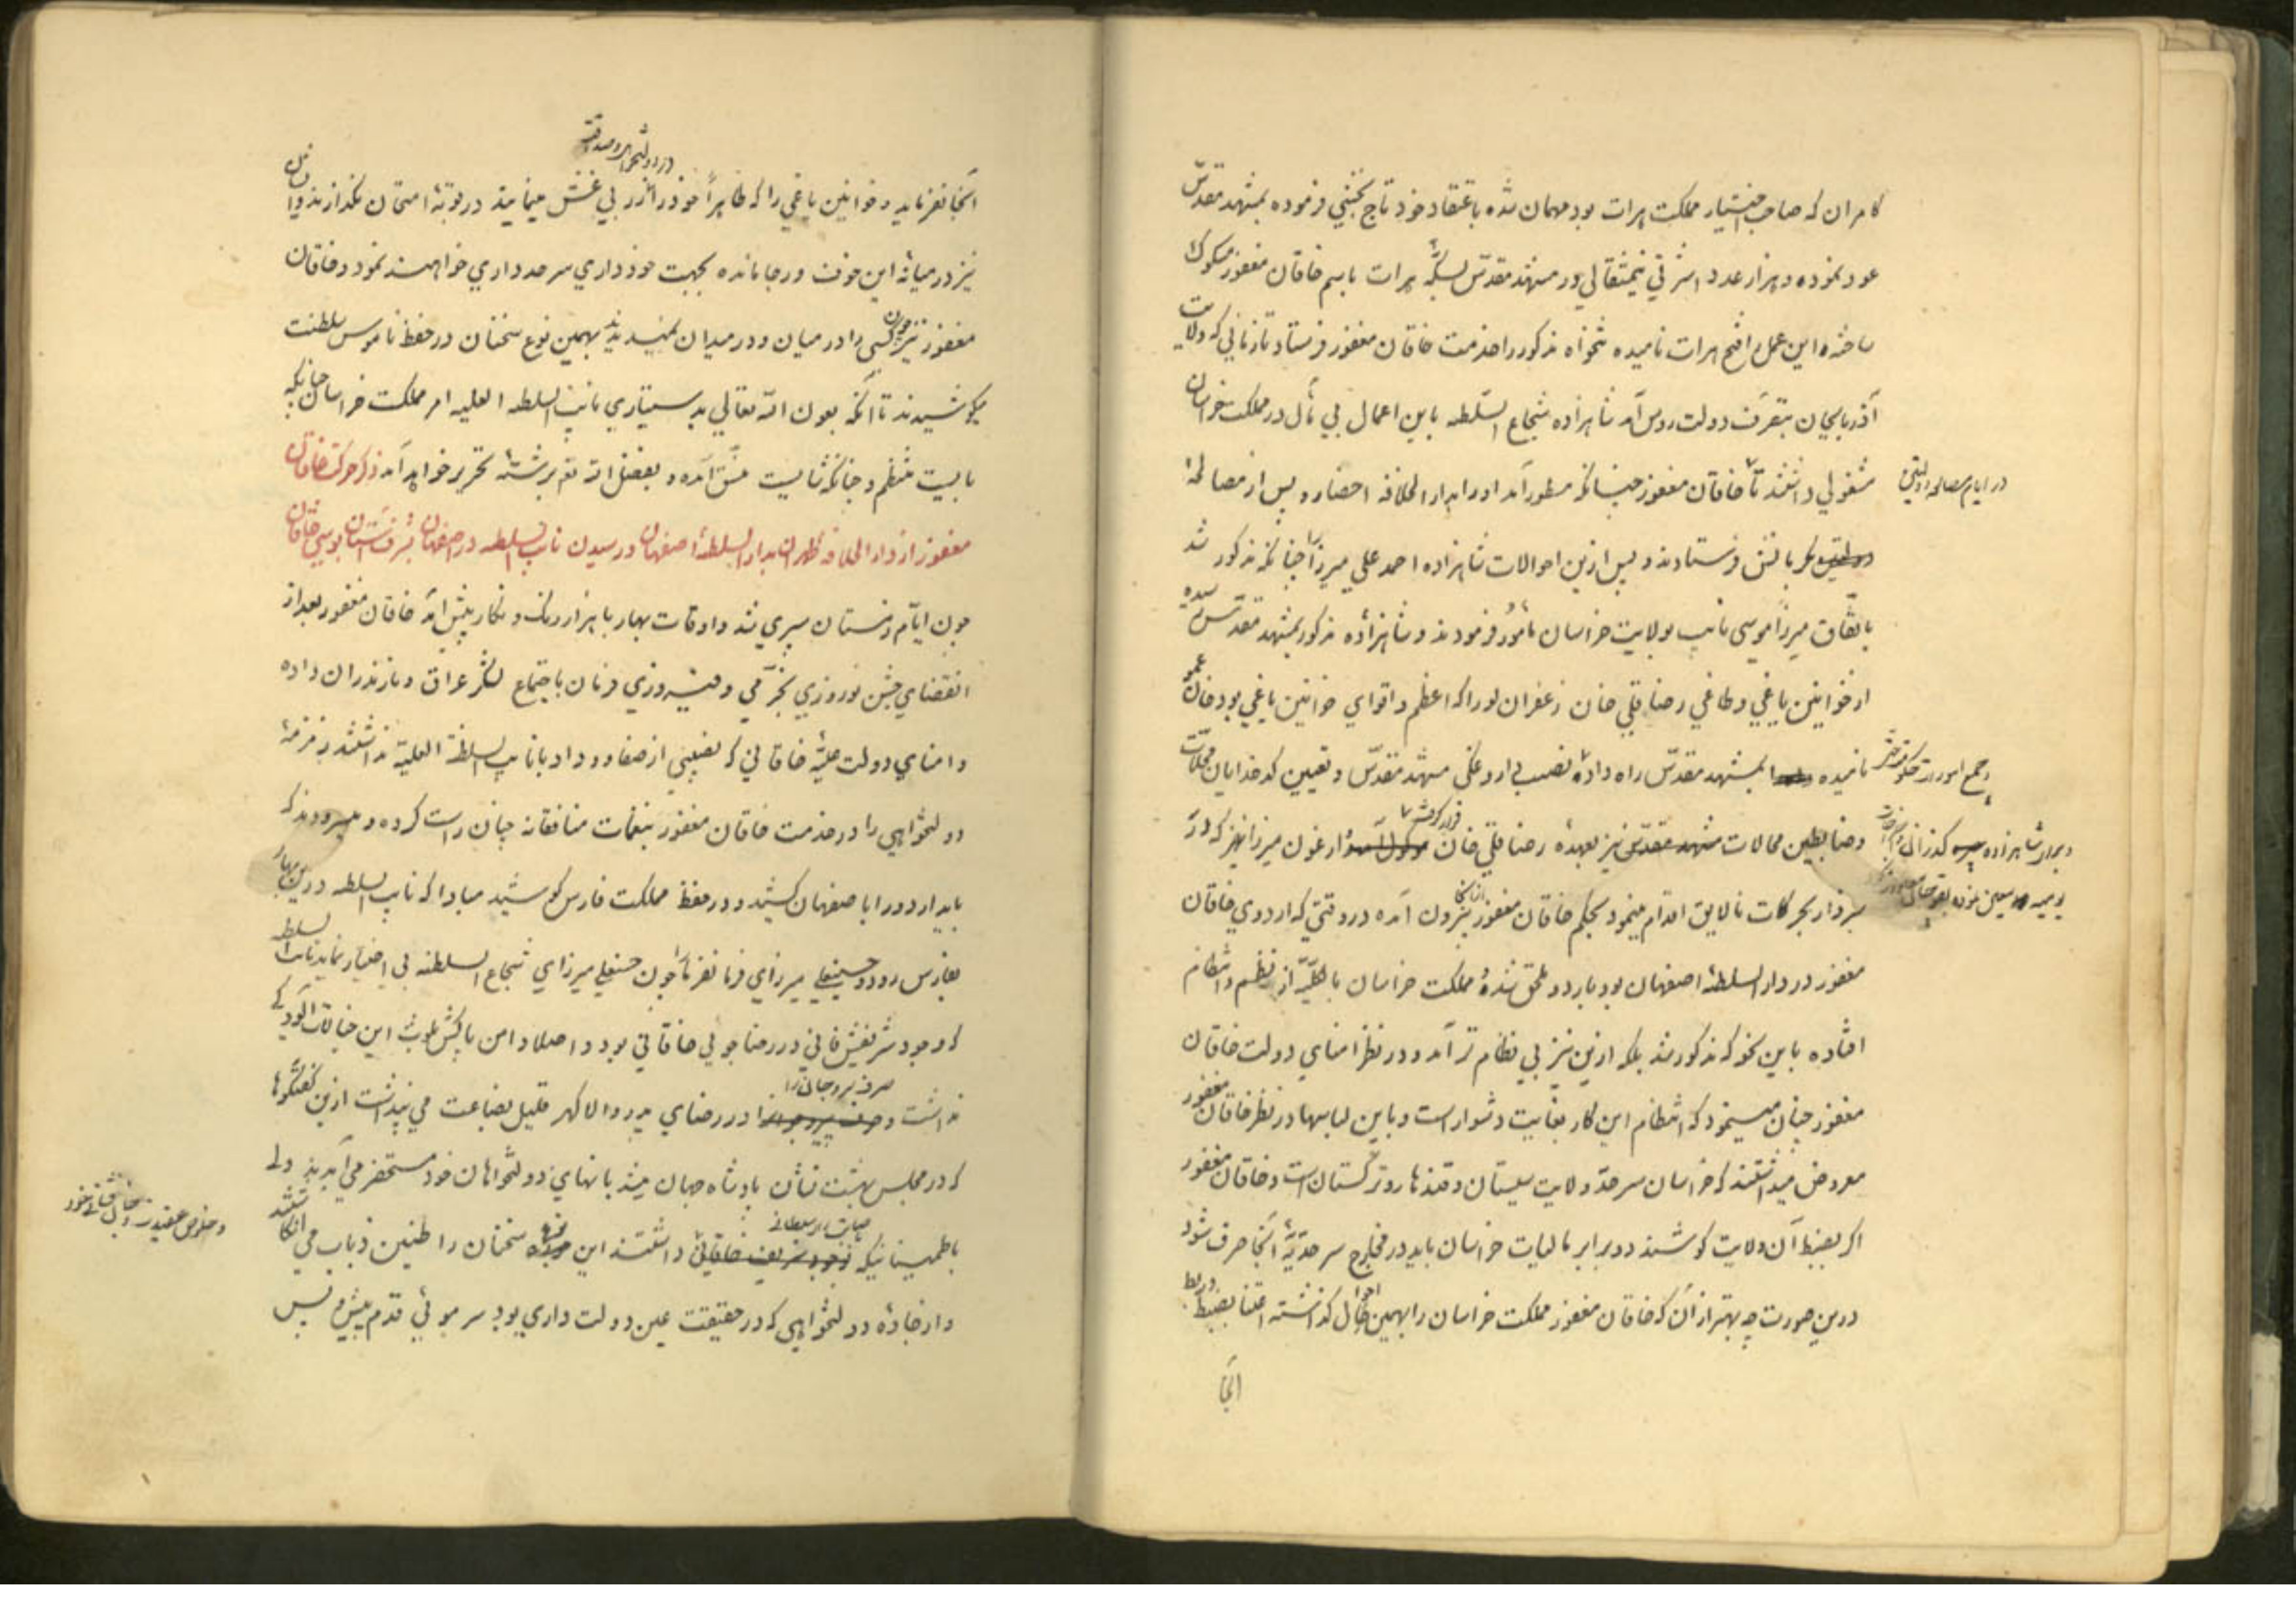 کامران که صاحب اختیار مملکت هرات بود مهمان شده باعتقاد خود تاج بخشی فرموده بمشهد مقدس
عود نموده و هزار عدد اشرفی نیمثقالی در مشهد مقدس بسکه هرات باسم خاقان مغفور مسکوک
ساخته این عمل را فتح هرات نامیده تنخواه مذکور را بخدمت خاقان مغفور فرستاد تا زمانی که ولایت
آذربایجان بتصرف دولت روس آمد شاهزاده شجاع السلطه باین اعمال بی مآل در مملکت خراسان
مشغولی داشتند تا خاقان مغفور چنانکه مسطور آمد او را بدار الخلافه احضار و پس از مصالحه
در ایام مصالحه دولتین
بکرمانش فرستادند و پس ازین احوالات شاهزاده احمد علی میرزا چنانکه مذکور شد
باتفاق میرزا موسی نایب بولایت خراسان مأمور فرمودند و شاهزاده مذکور بمشهد مقدس رسیده
از خوانین یاغی و طاغی رضا قلی خان زعفران لو را که اعظم و اقوای خوانین یاغی بود خان عمو
نامیده بمشهد مقدس راه داده نصب داروغگی مشهد مقدس و تعیین کدخدایان محلات
و جمیع امورات حکومتش
و ضابطین محالات مشهد مقدس نیز بعهده رضا قلی خان قرار گرفت ارغون میرزا نیز که در
و بر شاهزاده کذرانی
سبزوار بحرکات نالایق اقدام مینمود بحکم خاقان مغفور از آنجا بیرون آمده در وقتی که اردوی خاقان
مغفور در دار السلطه اصفهان بود باردو ملحق شده مملکت خراسان بالکلیه از نظم و انتظام
افتاده باین نحو که مذکور شد بلکه ازین نیز بی نظام تر آمد و در نظر امنای دولت خاقان
مغفور چنان مینمود که انتظام این کار بغایت دشوار است و باین لباسها در نظر خاقان مغفور
معروض میداشتند که خراسان سرحد ولایت سیستان و قندهار و ترکستان است و خاقان مغفور
اگر بضبط آن ولایت کوشند دو برابر مالیات خراسان باید در مخارج سرحدیه آنجا صرف شود
درین صورت چه بهتر از آن که خاقان مغفور مملکت خراسان را بهمین احوال گذاشته اعتنا بضبط و ربط
آنجا
در دولتخواهی و صداقت
آنجا نفرماید و خوانین یاغی را که ظاهراً خود را زر بی غش مینمایند در بوته امتحان بگذارند و ایشان
نیز در میانه این خوف و رجا مانده بجهت خودداری سرحدداری خواهند نمود و خاقان
مغفور نیز چون کسی را در میان و در میدان نمیدیدند بهمین نوع سخنان در حفظ ناموس سلطنت
میکوشیدند تا آنکه بعون الله تعالی بدستیاری نایب السلطه العلیه امر مملکت خراسان چنانکه
بایست منتظم و چنانکه شایست منسق آمده و بفضل الله برشته تحریر خواهد آمد ذکر حرکت خاقان
مغفور از دار الخلافه طهران بدار السلطه اصفهان و رسیدن نایب السلطه در اصفهان بشرف آستان بوسی خاقان
چون ایام زمستان سپری شد و اوقات بهار با هزار رنگ و نگار پیش آمد خاقان مغفور بعد از
انقضای جشن نوروزی بخرمی و فیروزی فرمان باجتماع لشکر عراق و مازندران داده
و امنای دولت علیه خاقانی که نصیبی از صفا و وداد با نایب السلطه العلیه نداشتند زمزمه
دولتخواهی را در خدمت خاقان مغفور بنغمات منافقانه چنان راست کرده و میسرودند که
باید اردو را باصفهان کشید و در حفظ مملکت فارس کوشید مبادا که نایب السلطه درین بهار
بفارس رود و حسینعلی میرزای فرمانفرما را چون حسنعلی میرزای شجاع السلطنه بی اختیار نماید نایب السلطه
که وجود شریفش فانی در رضاجوئی خاقانی بود و اصلا دامن پاکش ملوث این خیالات آلودگی
نداشت و صرف سر و جان را در رضای پدر والا گهر قلیل بضاعت می پنداشت ازین گفتگوها
که در مجلس بهشت نشان پادشاه جهان میشد بانهای دولتخواهان خود مستحضر می آمدند ولی
باطمینانیکه داشتند این سخنان را طنین ذباب می انگاشتند
و خلوص عقیدت و خود
و از جاده دولتخواهی که در حقیقت عین دولت داری بود سر موئی قدم پیش و پس